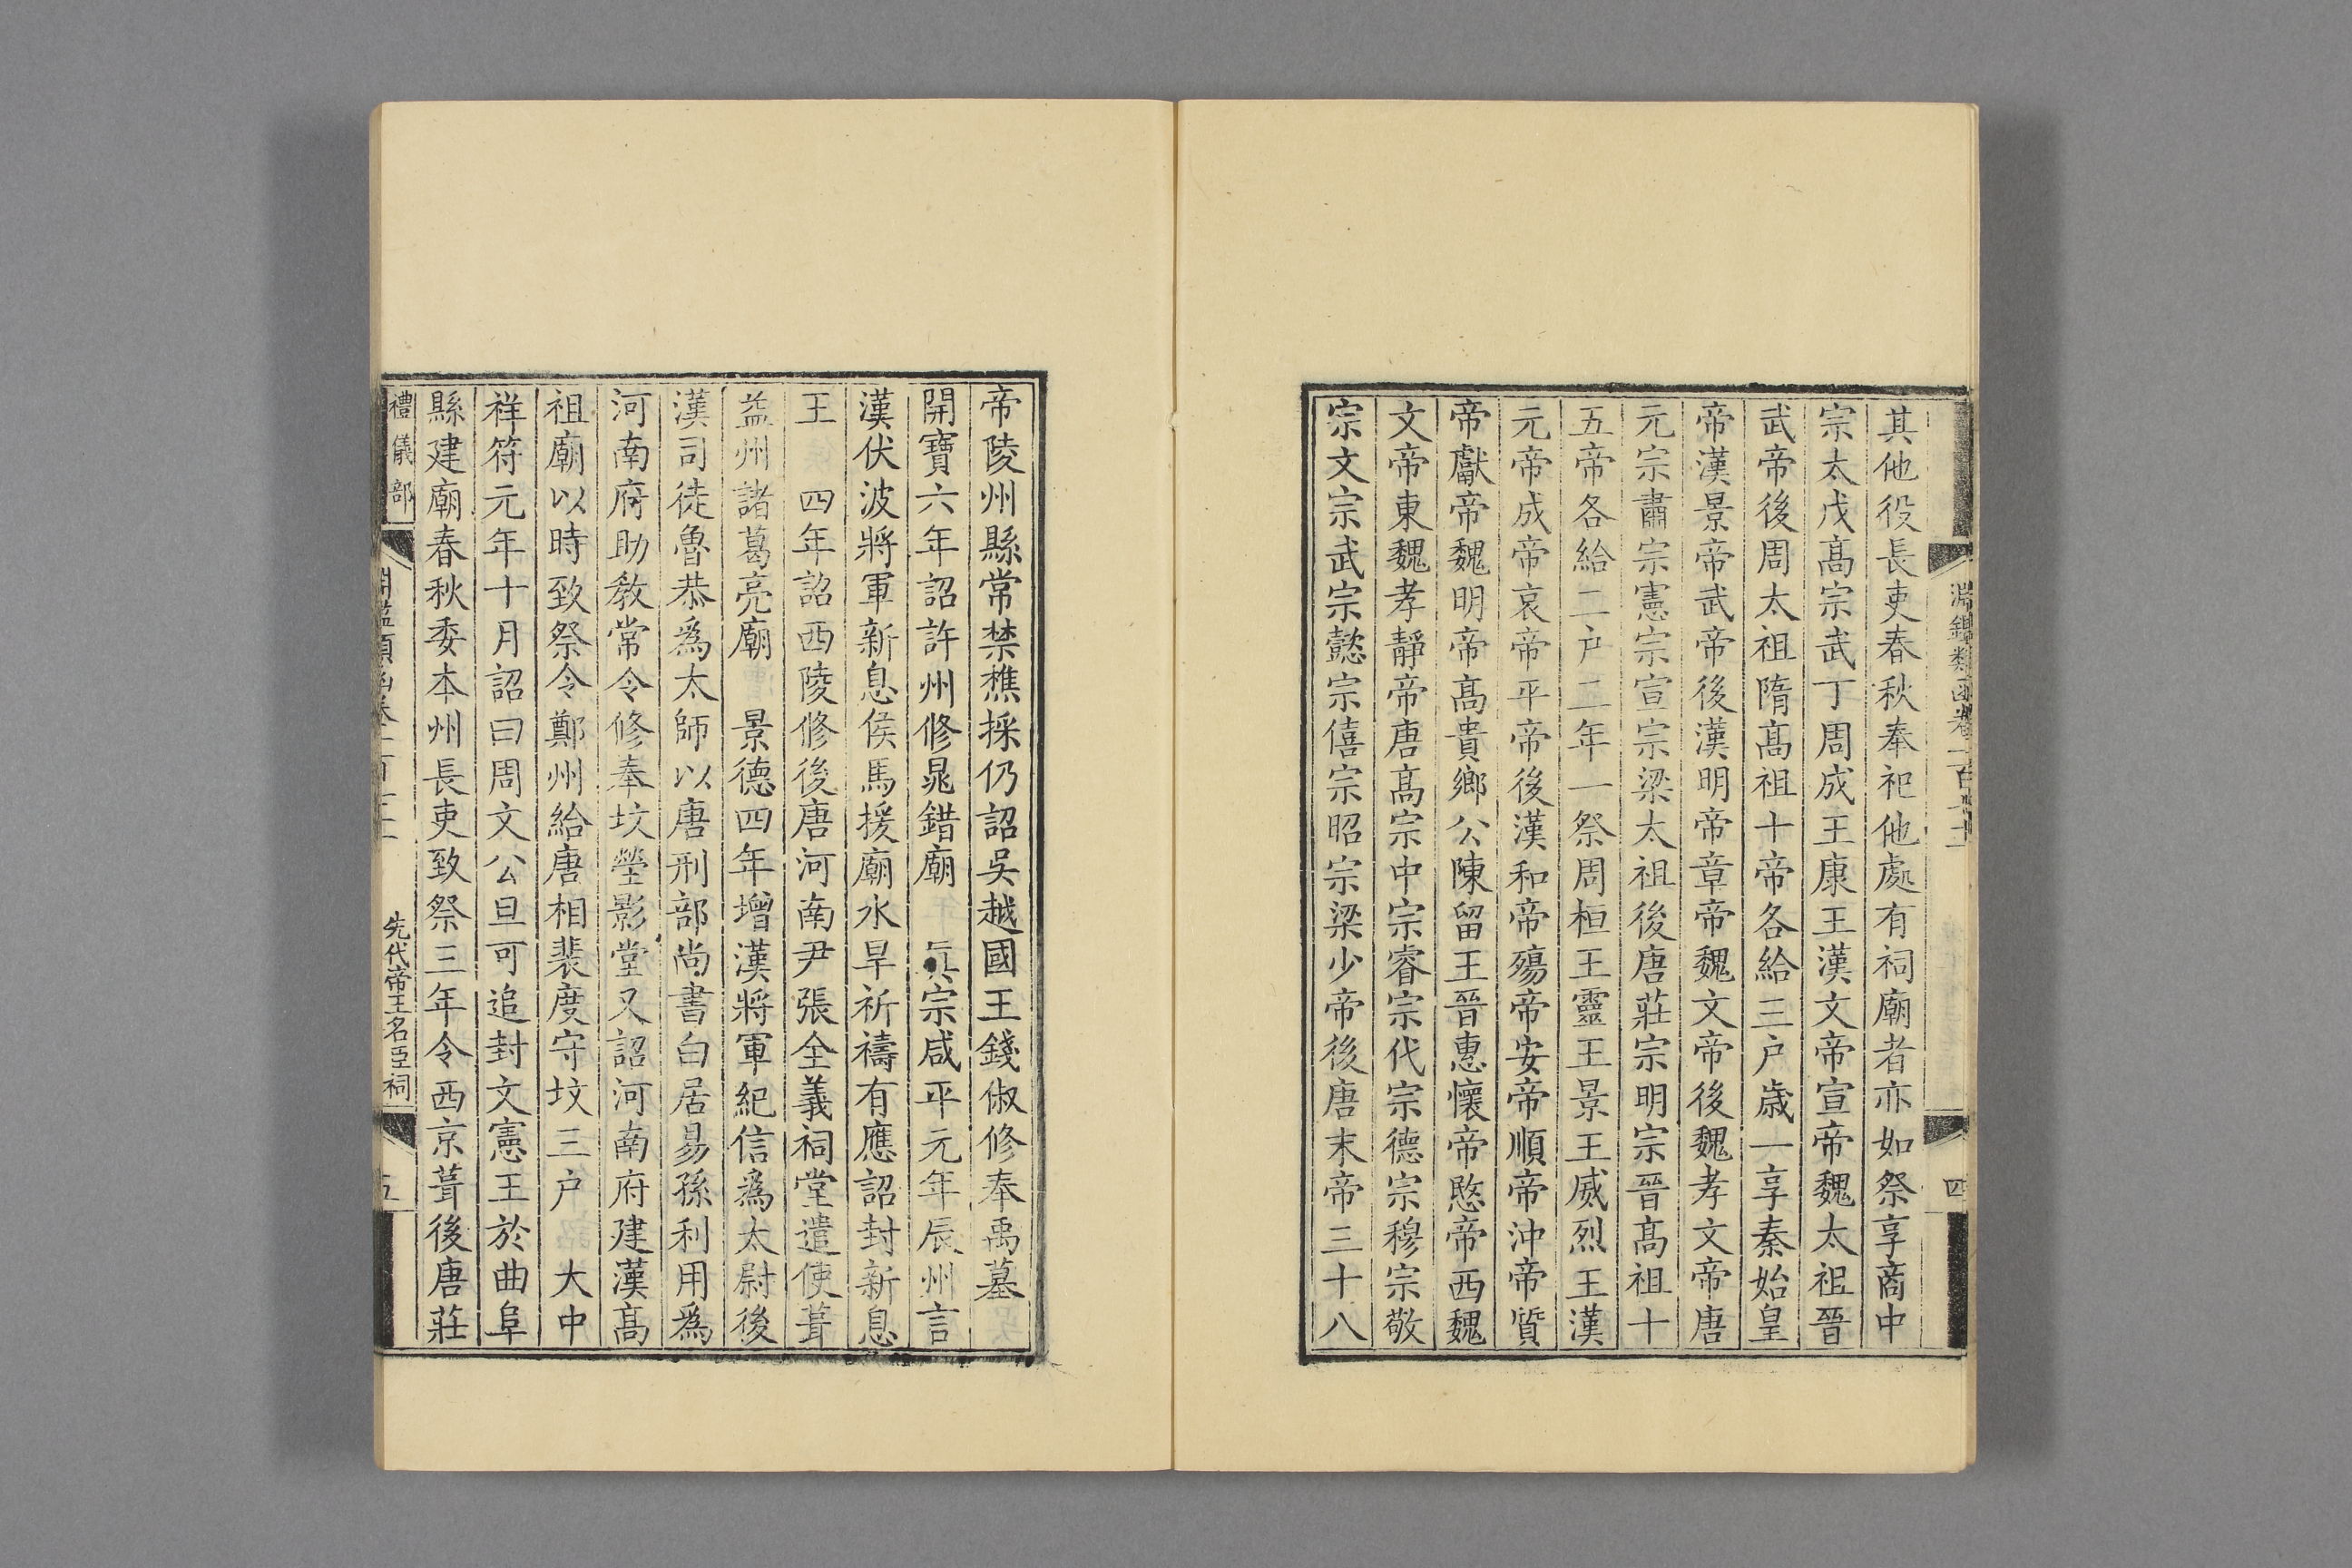 淵鑑類函卷一百六十二
四
其他役長吏春秋奉祀他處有祠廟者亦如祭享商中
宗太戊髙宗武丁周成王康王漢文帝宣帝魏太祖晉
武帝後周太祖隋髙祖十帝各給三户歳一享秦始皇
帝漢景帝武帝後漢明帝章帝魏文帝後魏孝文帝唐
元宗肅宗憲宗宣宗梁太祖後唐莊宗明宗晉髙祖十
五帝各給二户二年一祭周桓王靈王景王威烈王漢
元帝成帝哀帝平帝後漢和帝殤帝安帝順帝沖帝質
帝獻帝魏明帝髙貴鄉公陳留王晉惠懷帝愍帝西魏
文帝東魏孝靜帝唐髙宗中宗睿宗代宗德宗穆宗敬
宗文宗武宗懿宗僖宗昭宗梁少帝後唐末帝三十八
帝陵州縣常禁樵採仍詔吳越國王錢俶修奉禹墓
開寶六年詔許州修晁錯廟 真宗咸平元年辰州言
漢伏波將軍新息侯馬援廟水旱祈禱有應詔封新息
王 四年詔西陵修後唐河南尹張全義祠堂遣使葺
益州諸葛亮廟 景德四年增漢將軍紀信為太尉後
漢司徒魯恭為太師以唐刑部尚書白居易孫利用為
河南府助教常令修奉坟塋影堂又詔河南府建漢髙
祖廟以時致祭令鄭州給唐相裴度守坟三户 大中
祥符元年十月詔曰周文公旦可追封文憲王於曲阜
縣建廟春秋委本州長吏致祭三年令西京葺後唐莊
禮儀部
先代帝王名臣祠
五